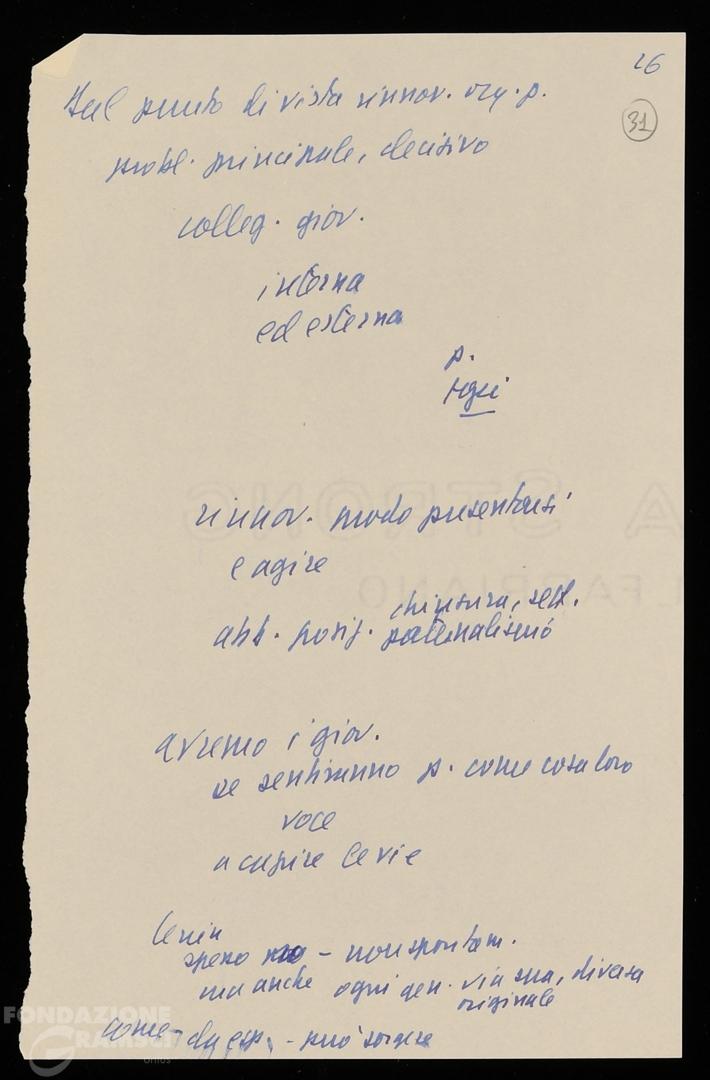 26
31
Dal punto di vista rinnov. org. p.
probl. principale, decisivo
colleg. giov.
interna
ed esterna
p.
fgci
rinnov. modo presentarsi
e agire
abb. posiz. chiusura, sett.
paternalismo
avremo i giov.
se sentiranno p. come cosa loro
voce
a capire le vie
Lenin
spesso – non spontan.
ma anche ogni gen. via sua, diversa
originale
come – da esp. – può sorgere
FONDAZIONE
GRAMSCI
onlus
A STRONG
FABRIANO